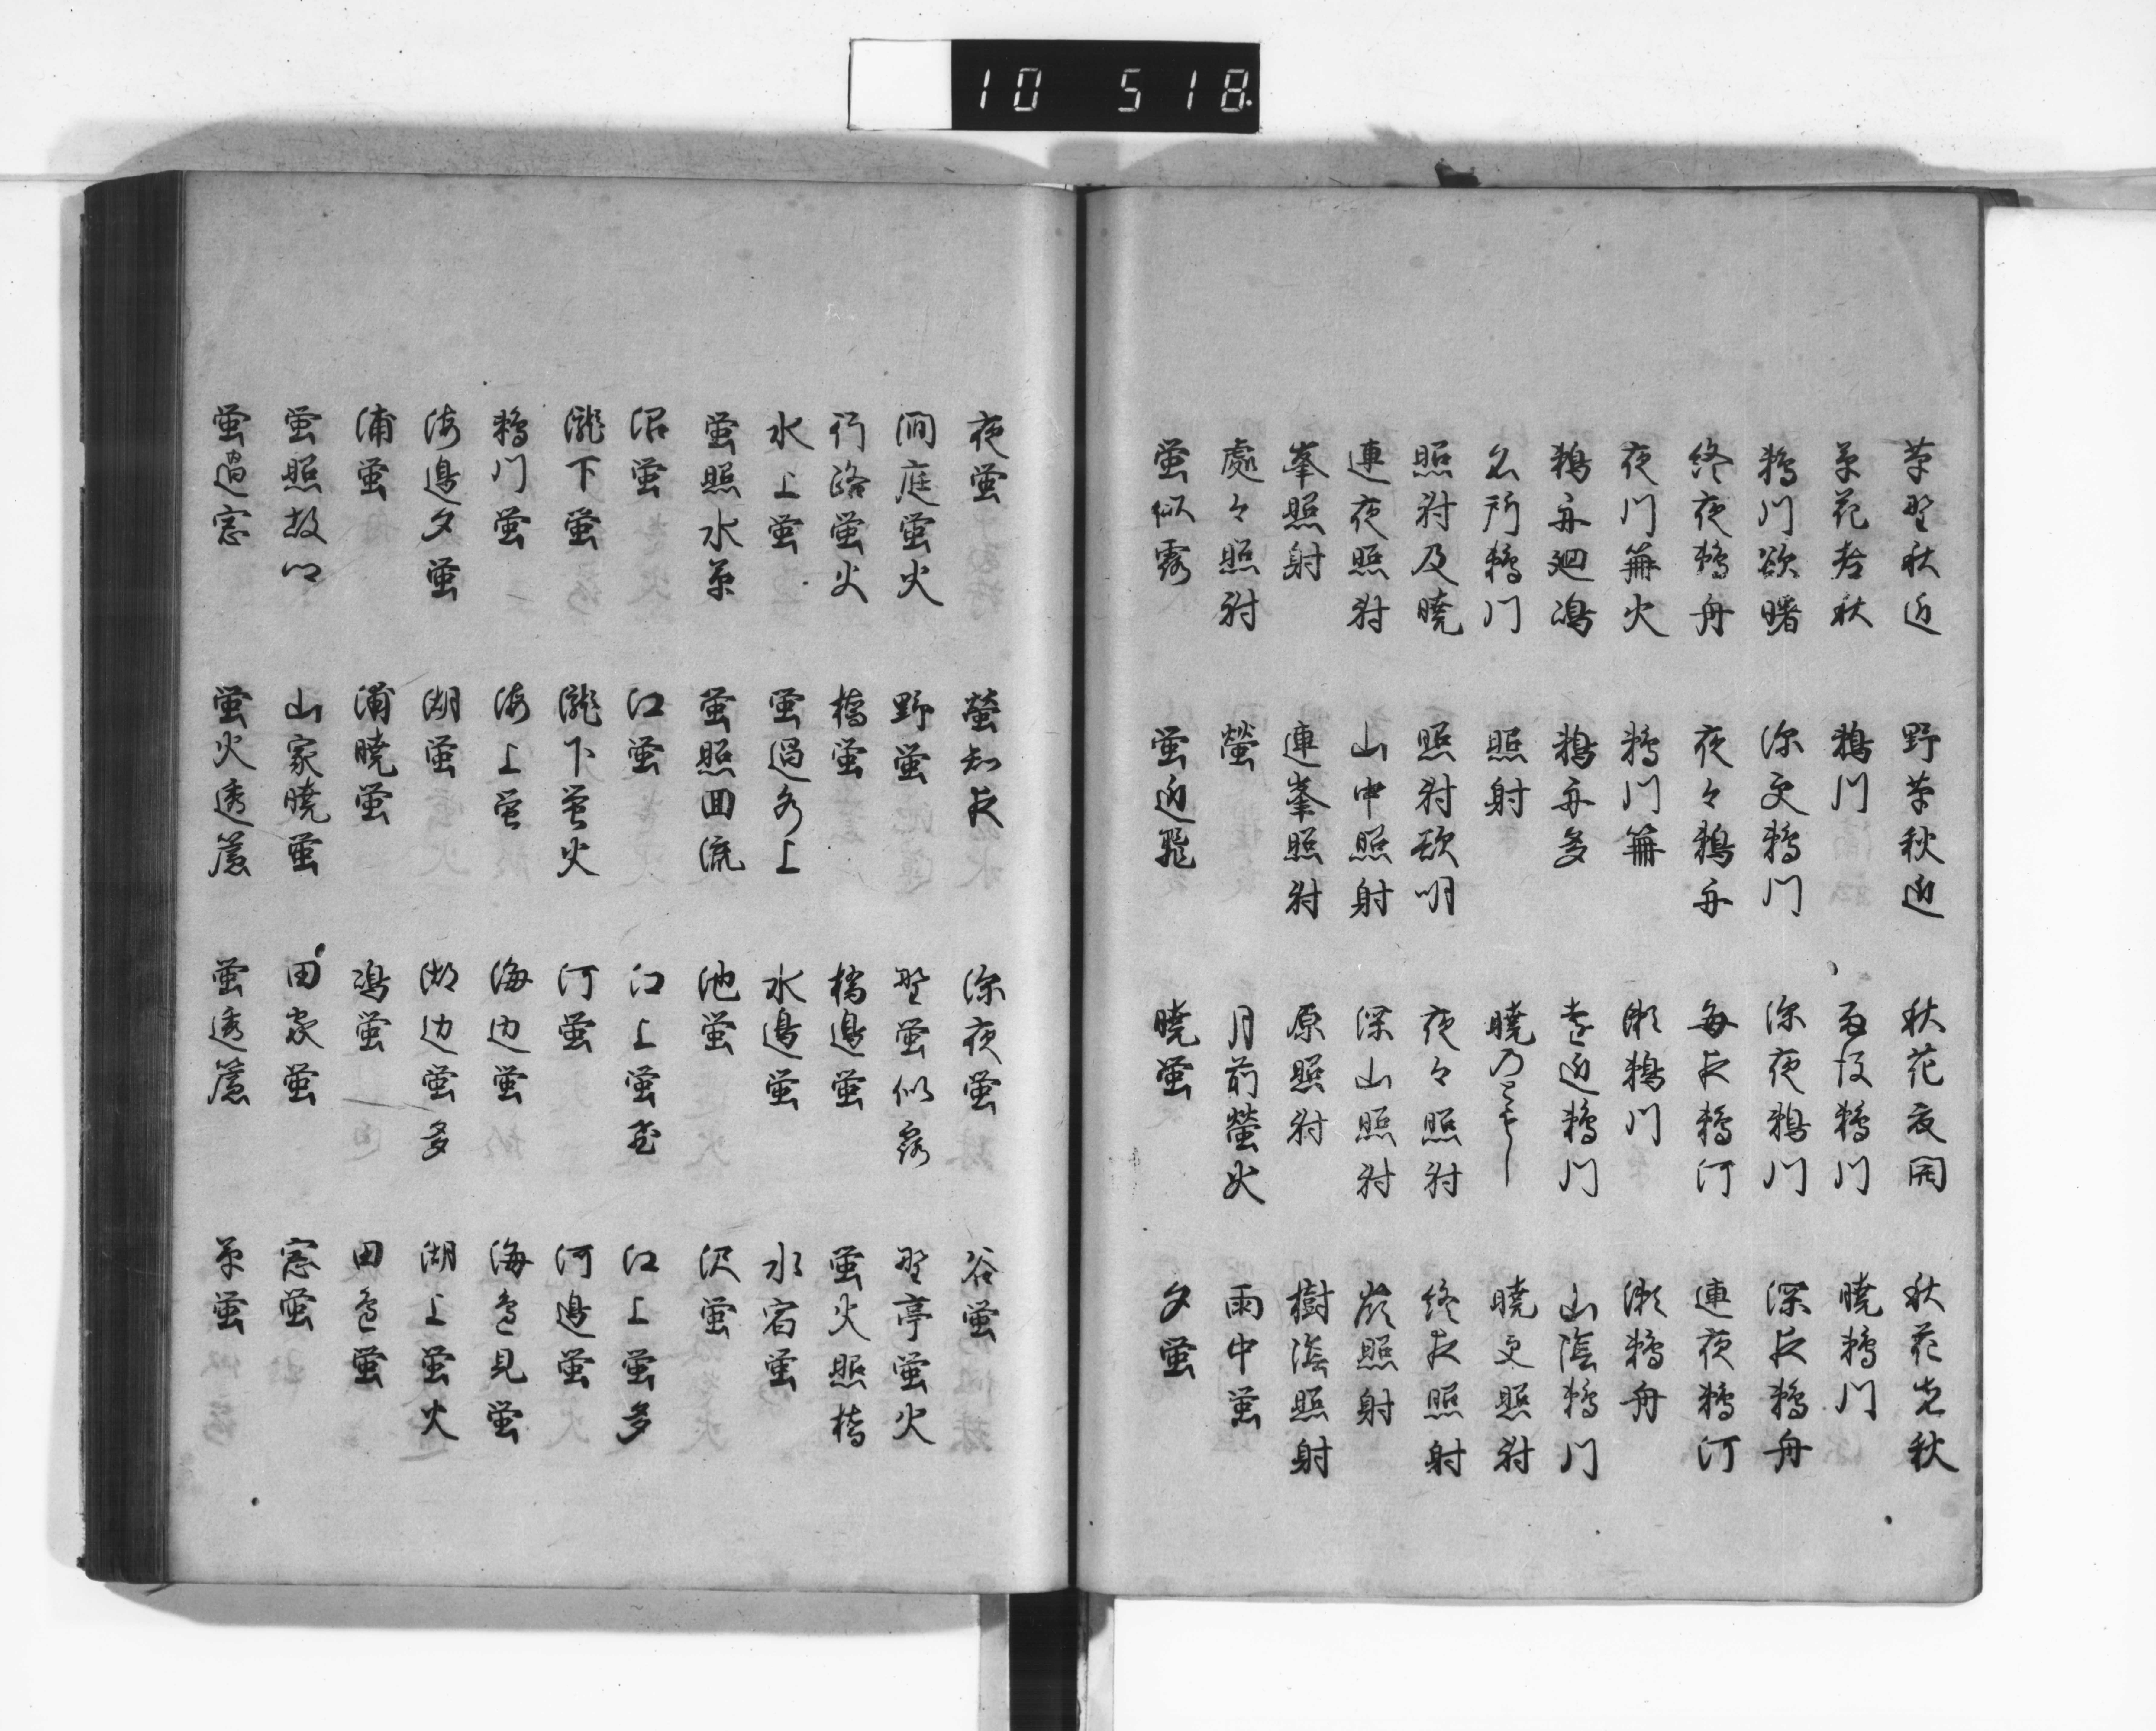 10 518
草野秋近 野草秋近 秋花夜開 秋花先秋
草花老秋 鵜川 雨後鵜川 暁鵜川
鵜川欲曙 深更鵜川 深夜鵜川 深夜鵜舟
終夜鵜舟 夜々鵜舟 毎夜鵜河 連夜鵜河
夜川篝火 鵜川篝 瀬鵜川 瀬鵜舟
鵜舟廻嶋 鵜舟多 遠近鵜川 山陰鵜川
名所鵜川 照射 暁 暁更照射
照射及暁 照射欲明 夜々照射 終夜照射
連夜照射 山中照射 深山照射 嶺照射
峯照射 連峯照射 原照射 樹陰照射
處々照射 螢 月前螢火 雨中蛍
蛍似露 蛍近飛 暁蛍 夕蛍
夜蛍 螢知夜 深夜蛍 谷蛍
澗庭蛍火 野蛍 野蛍似露 野亭蛍火
行路蛍火 橋蛍 橋邊蛍 蛍火照橋
水上蛍 蛍過水上 水邊蛍 水宿蛍
蛍照水草 蛍照回流 池蛍 沢蛍
沼蛍 江蛍 江上蛍 江上蛍多
瀧下蛍 瀧下蛍火 河蛍 河邊蛍
鵜川蛍 海上蛍 海辺蛍 海邊見蛍
海邊夕蛍 湖蛍 湖辺蛍多 湖上蛍火
浦蛍 浦暁蛍 嶋蛍 田邊蛍
蛍照 山家暁蛍 田家蛍 窓蛍
蛍過窓 蛍火透簾 蛍透簾 草蛍